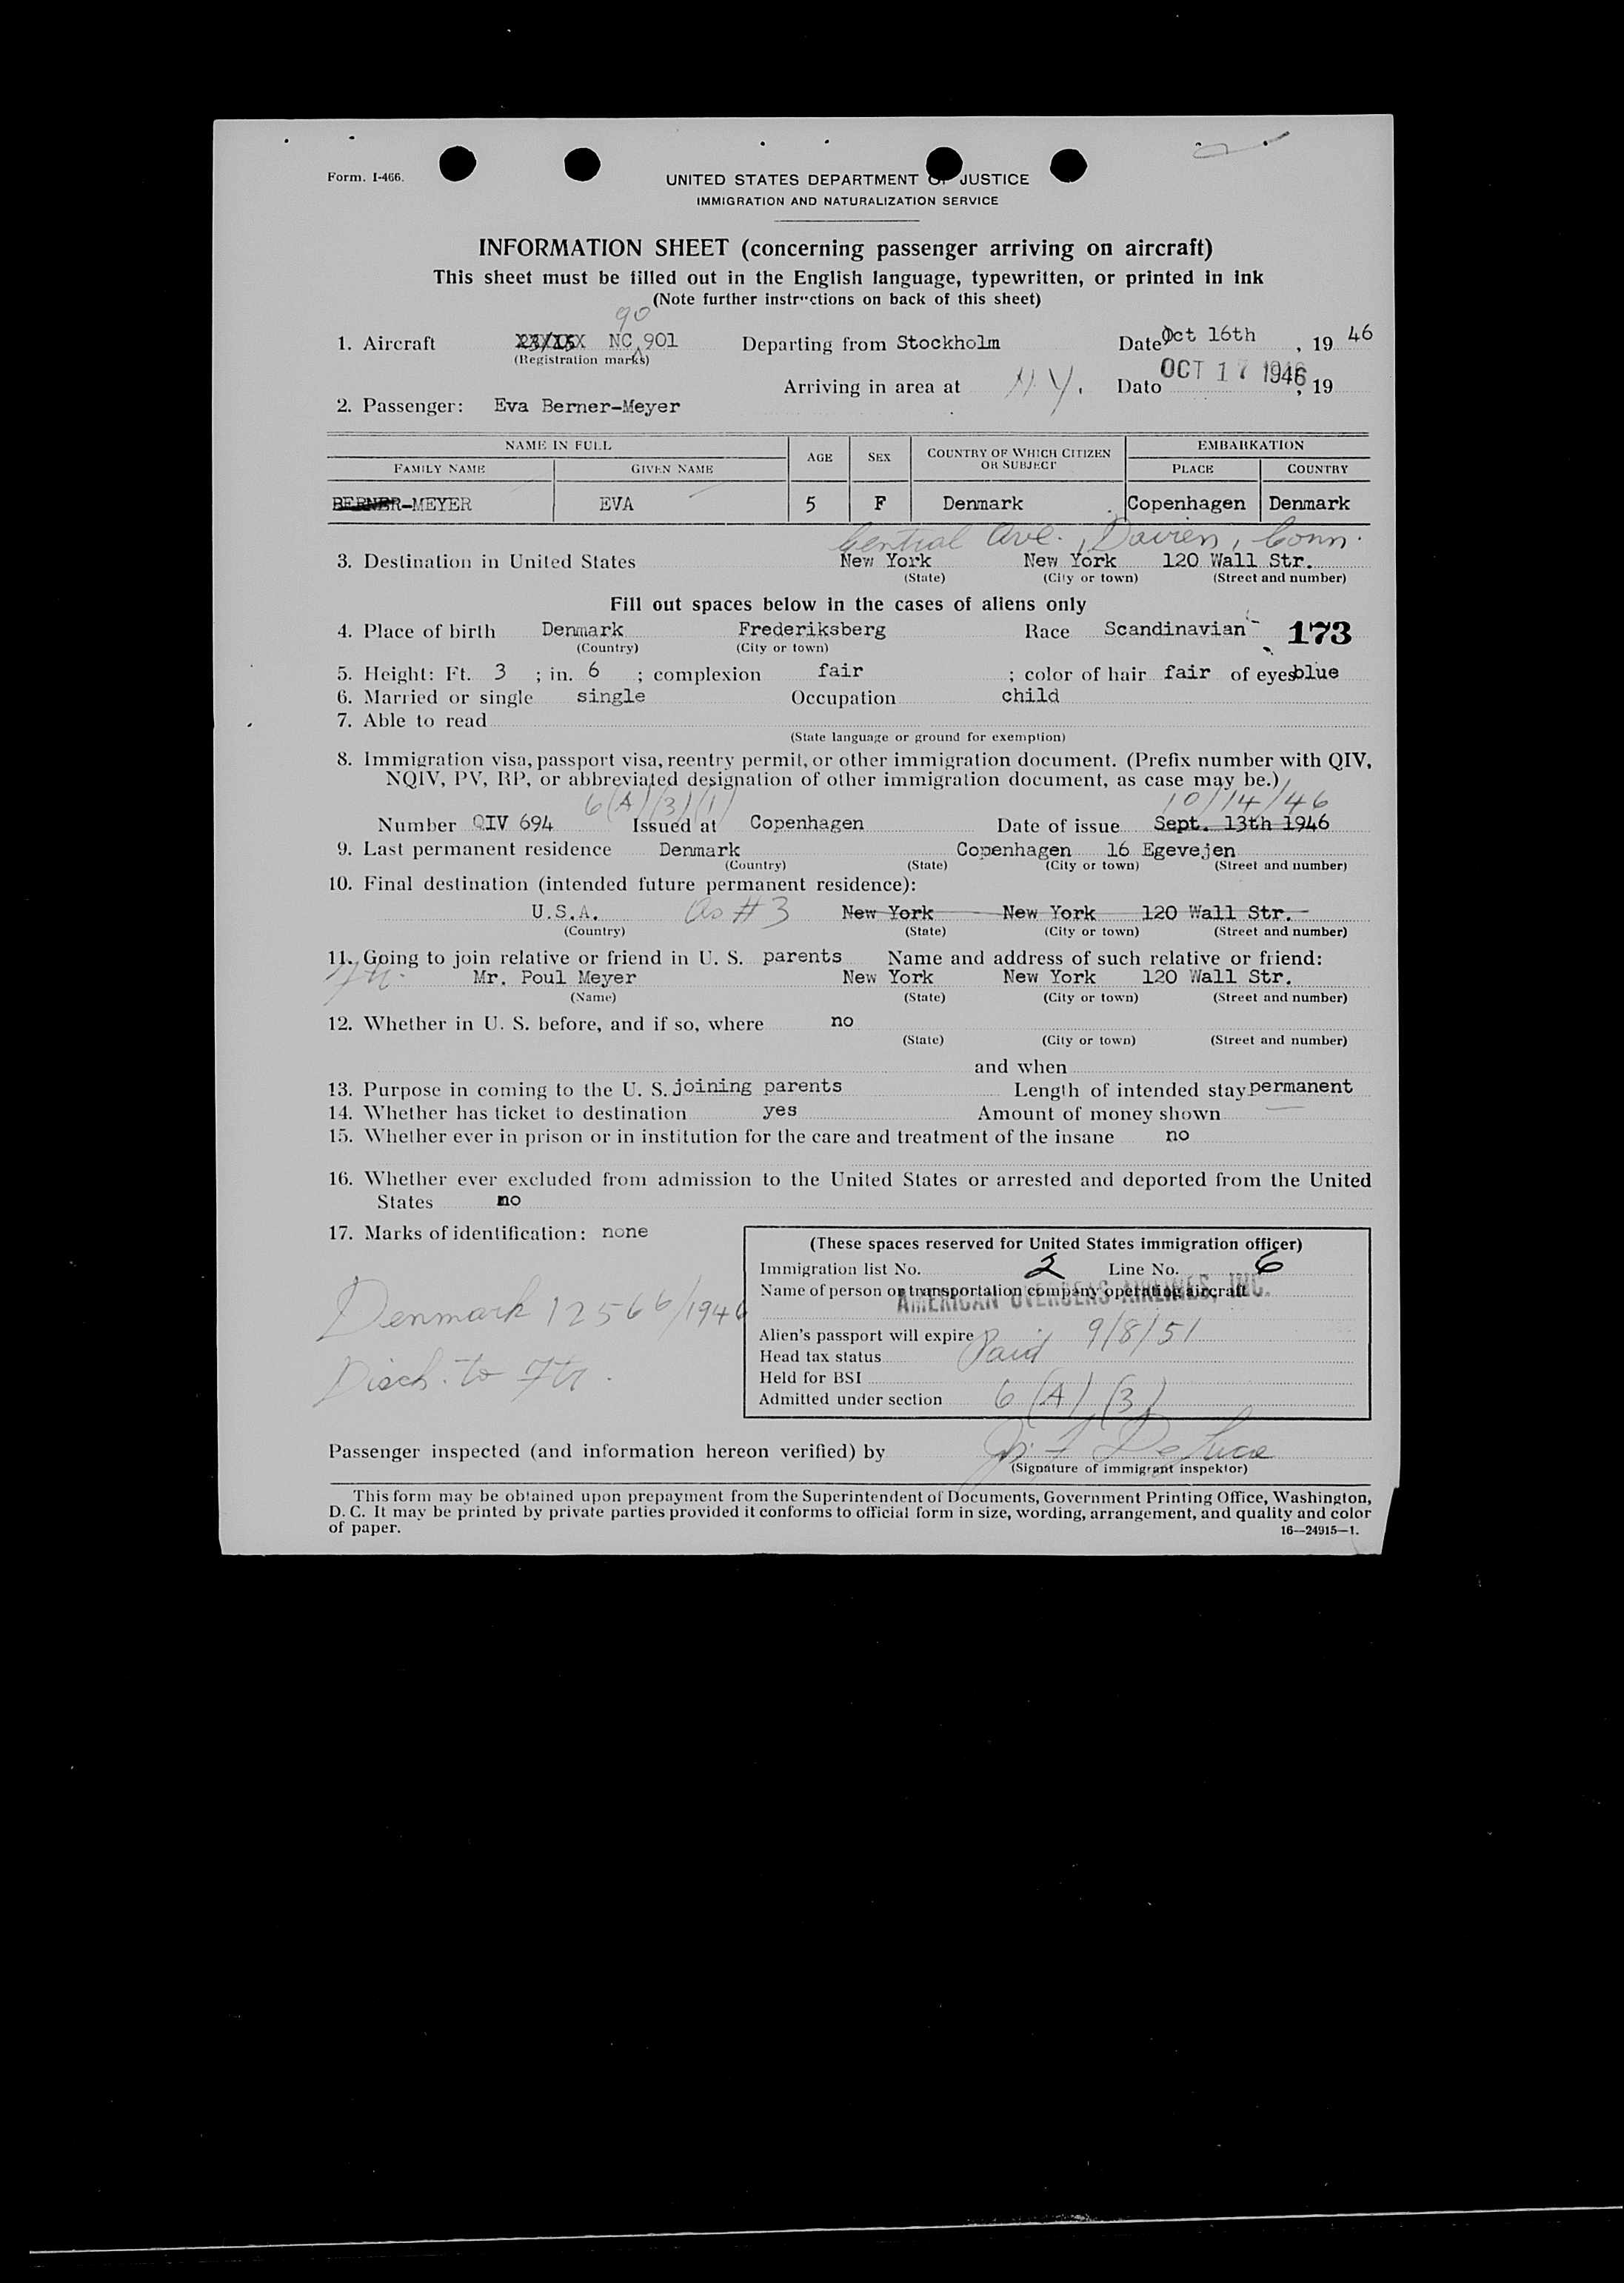 Form. I-466.
UNITED STATES DEPARTMENT OF JUSTICE
IMMIGRATION AND NATURALIZATION SERVICE
INFORMATION SHEET (concerning passenger arriving on aircraft)
This sheet must be filled out in the English language, typewritten, or printed in ink
(Note further instructions on back of this sheet)
90
1. Aircraft NC 901 Departing from Stockholm Date Oct 16th , 19 46
(Registration marks)
Arriving in area at N.Y. Date OCT 17 1946 , 19
2. Passenger: Eva Berner-Meyer
NAME IN FULL AGE SEX COUNTRY OF WHICH CITIZEN OR SUBJECT EMBARKATION
FAMILY NAME GIVEN NAME PLACE COUNTRY
BERNER-MEYER EVA 5 F Denmark Copenhagen Denmark
Central Ave., Darien, Conn.
3. Destination in United States New York New York 120 Wall Str.
(State) (City or town) (Street and number)
Fill out spaces below in the cases of aliens only
4. Place of birth Denmark Frederiksberg Race Scandinavian 173
(Country) (City or town)
5. Height: Ft. 3 ; in. 6 ; complexion fair ; color of hair fair of eyes blue
6. Married or single single Occupation child
7. Able to read
(State language or ground for exemption)
8. Immigration visa, passport visa, reentry permit, or other immigration document. (Prefix number with QIV,
NQIV, PV, RP, or abbreviated designation of other immigration document, as case may be.)
6(A)(3)(1) 10/14/46
Number QIV 694 Issued at Copenhagen Date of issue Sept. 13th 1946
9. Last permanent residence Denmark Copenhagen 16 Egevejen
(Country) (State) (City or town) (Street and number)
10. Final destination (intended future permanent residence):
U.S.A. As #3 New York New York 120 Wall Str.
(Country) (State) (City or town) (Street and number)
11. Going to join relative or friend in U. S. parents Name and address of such relative or friend:
Fth. Mr. Poul Meyer New York New York 120 Wall Str.
(Name) (State) (City or town) (Street and number)
12. Whether in U. S. before, and if so, where no
(State) (City or town) (Street and number)
and when
13. Purpose in coming to the U. S. joining parents Length of intended stay permanent
14. Whether has ticket to destination yes Amount of money shown
15. Whether ever in prison or in institution for the care and treatment of the insane no
16. Whether ever excluded from admission to the United States or arrested and deported from the United
States no
17. Marks of identification: none
(These spaces reserved for United States immigration officer)
Immigration list No. 2 Line No. 6
Name of person or transportation company operating aircraft
AMERICAN OVERSEAS AIRLINES, INC.
Denmark 12566/1946
Alien's passport will expire 9/8/51
Head tax status Paid
Disch. to Fth.
Held for BSI
Admitted under section 6(A)(3)
Passenger inspected (and information hereon verified) by De Luca
(Signature of immigrant inspektor)
This form may be obtained upon prepayment from the Superintendent of Documents, Government Printing Office, Washington,
D. C. It may be printed by private parties provided it conforms to official form in size, wording, arrangement, and quality and color
of paper. 16—24915—1.